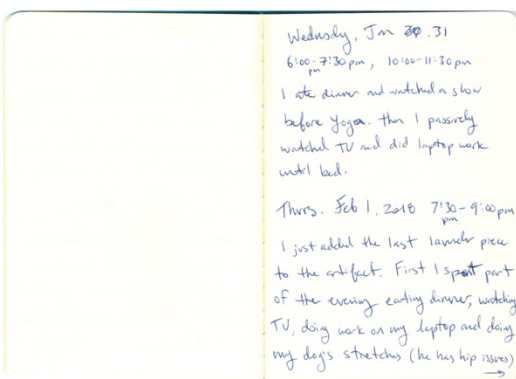 Wednsdy, Jan 30. 31
6:00-7:30pm, 10:00-11:30pm
pm
I ate dinner and watched a show
before Yoga. then I passively
watched TV and did laptop work
until bed.
Thurs. Feb 1, 2018 7:30-9:00pm
pm
I just added the last launder piece
to the artifact. First I spent part
of the evening eating dinner, watching
TV, doing work on my laptop and doing
my dog's stretches (he has hip issues)
→